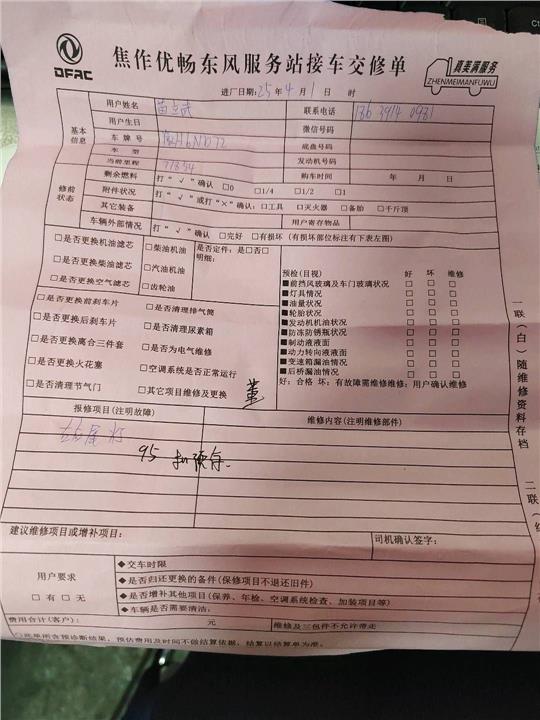 DFAC
焦作优畅东风服务站接车交修单
真美满服务
ZHENMEIMANFUWU
进厂日期: 25 年 4 月 1 日 时
基本信息
用户姓名
联系电话
用户生日 微信号码
车牌号 底盘号码
车型 发动机号码
当前里程 77834 购车时间 年 月 日
修前状态
剩余燃料 打“√”确认 □0 □1/4 □1/2 □1
附件状况 打“√”或打“×”确认: □工具 □灭火器 □备胎 □千斤顶
其它装备
车辆外部情况 打“√”确认 □完好 □有损坏 (有损坏部位标注有下表左图)
用户寄存物品
□是否更换机油滤芯 □柴油机油 是否定件: 是□否□
明细:
□是否更换柴油滤芯 □汽油机油
□是否更换空气滤芯 □齿轮油
□是否更换前刹车片 □是否清理排气筒
□是否更换后刹车片 □是否清理尿素箱
□是否更换离合三件套 □是否为电气维修
□是否更换火花塞 □空调系统是否正常运行
□是否清理节气门 □其它项目维修及更换
预检(目视) 好 坏 维修
■前挡风玻璃及车门玻璃状况 □ □ □
■灯具情况 □ □ □
■油量状况 □ □ □
■轮胎状况 □ □ □
■发动机机油状况 □ □ □
■防冻防锈瓶状况 □ □ □
■制动液液面 □ □ □
■动力转向液液面 □ □ □
■变速箱漏油情况 □ □ □
■后桥漏油情况 □ □ □
好: 合格 坏: 有故障需维修维修: 用户确认维修
报修项目(注明故障) 维修内容(注明维修部件)
左后尾灯
95 扣预存.
建议维修项目或增补项目: 司机确认签字:
用户要求
□有 □无
◆交车时限
◆是否归还更换的备件(保修项目不退还旧件)
◆是否增补其他项目(保养、年检、空调系统检查、加装项目等)
◆车辆是否需要清洁:
费用合计(客户): 元 维修及三包件不允许带走
□此单所含预诊断结果, 预估费用及时间不做结算依据, 结算以结算单为准。
一联(白)随维修资料存档
二联(